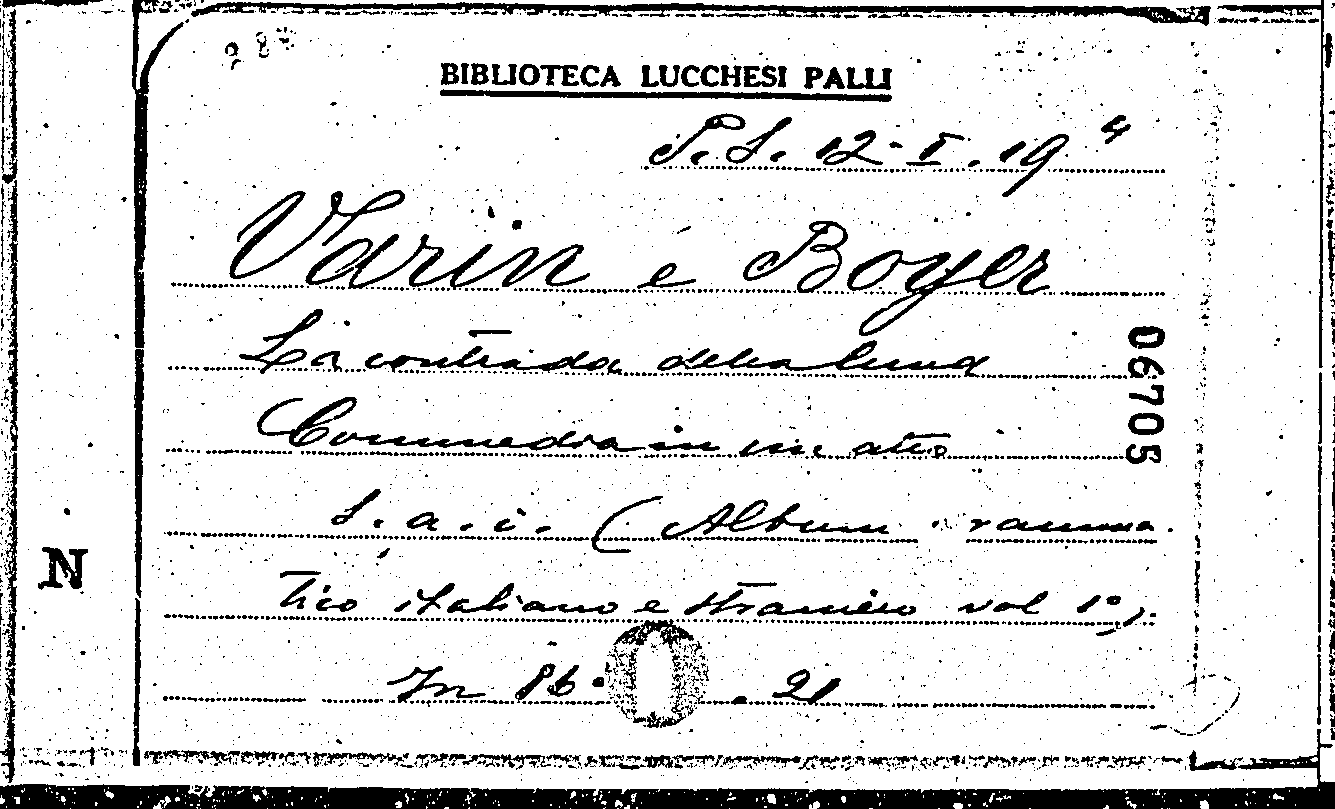 BIBLIOTECA LUCCHESI PALLI
P.S. 12-I.19 4
Varin e Boyer
La contrada della luna
Commedia in un atto
S.a.i. (Album ramma.
tico italiano e straniero vol 1°).
In 16° . 21
06705
N